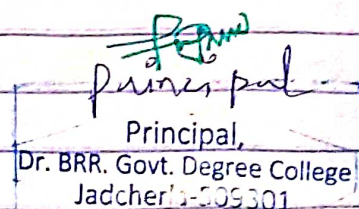 Principal
Principal,
Dr. BRR. Govt. Degree College
Jadcherla-509301